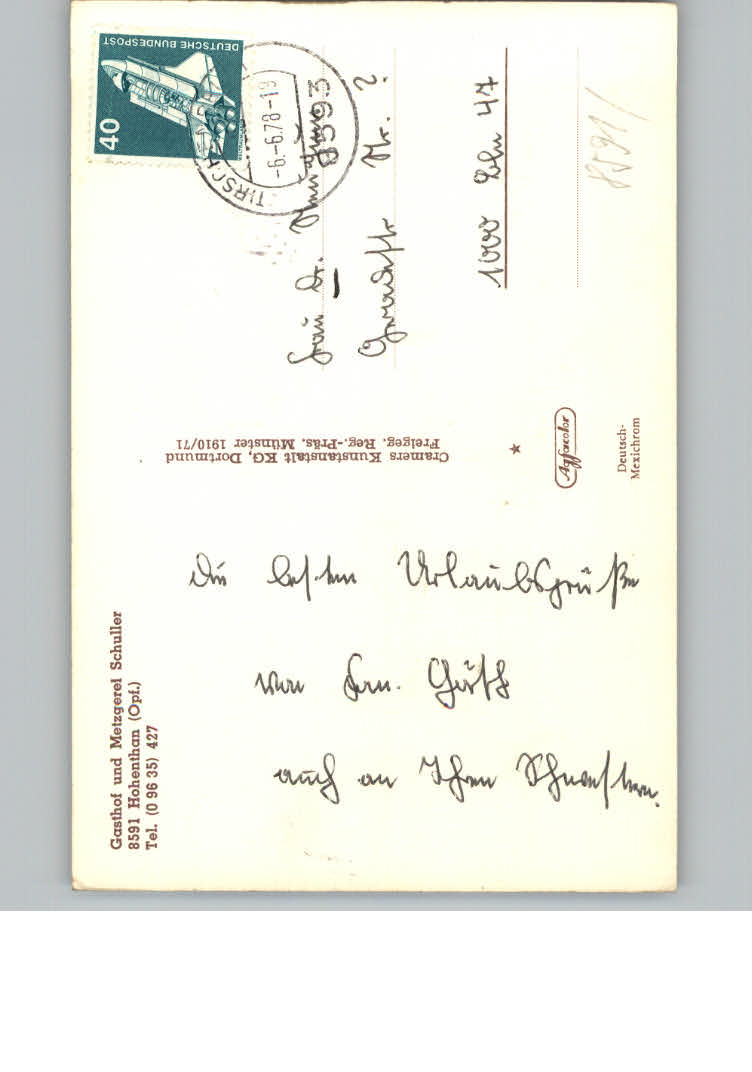 Gasthof und Metzgerei Schuller
8591 Hohenthan (Opf.)
Tel. (0 96 35) 427
Die besten Urlaubsgrüße
von Fam.
auch an Ihren Schwestern.
Cramers Kunstanstalt KG, Dortmund
Freigeg. Reg.-Präs. Münster 1910/71
Agfacolor
Deutsch-
Mexichrom
DEUTSCHE BUNDESPOST
40
TIRSCH
-6.-6.78-19
8593
Frau Dr.
Nr. ?
1000 Bln 47
8591/